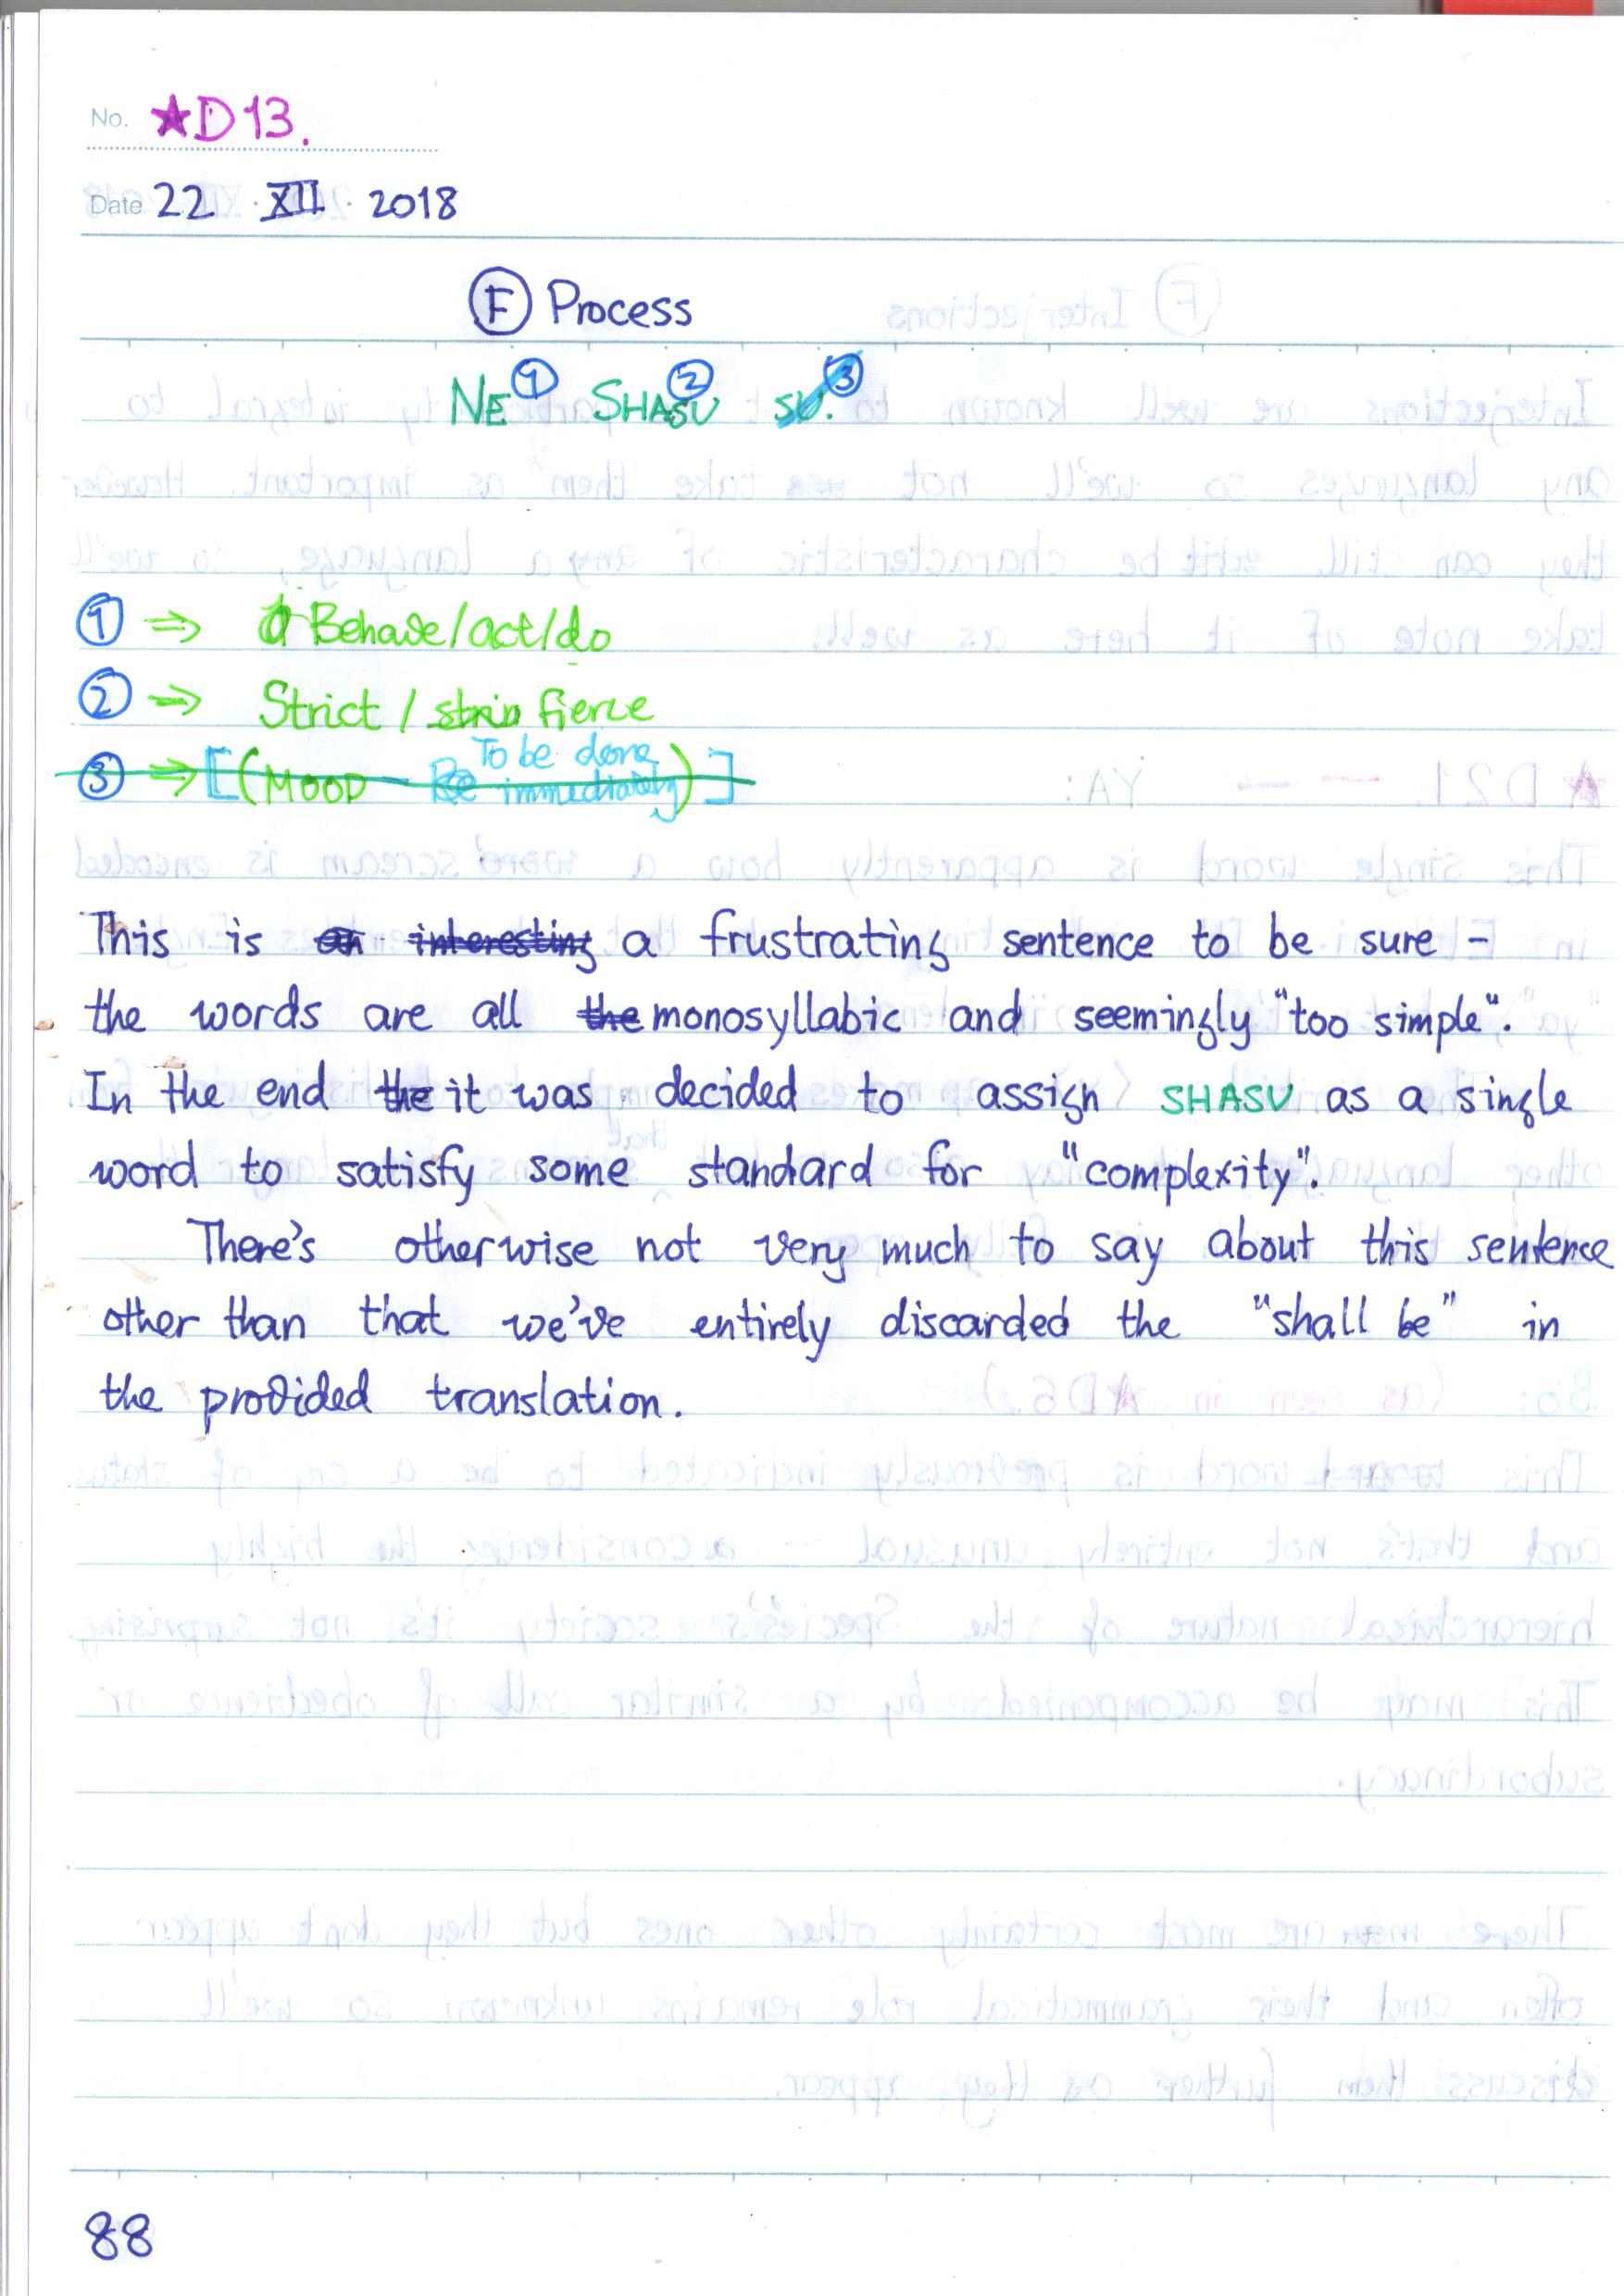 No. ★D13.
Date 22 · XII · 2018
Ⓕ Process
NE① SHASU② SU.③
① ⇒ Behave/act/do
② ⇒ Strict / strin fierce
To be done
③ ⇒ [(MOOD – Be immediately)]
This is an interesting a frustrating sentence to be sure -
the words are all the monosyllabic and seemingly "too simple".
In the end the it was decided to assign SHASU as a single
word to satisfy some standard for "complexity".
There's otherwise not very much to say about this sentence
other than that we've entirely discarded the "shall be" in
the provided translation.
88